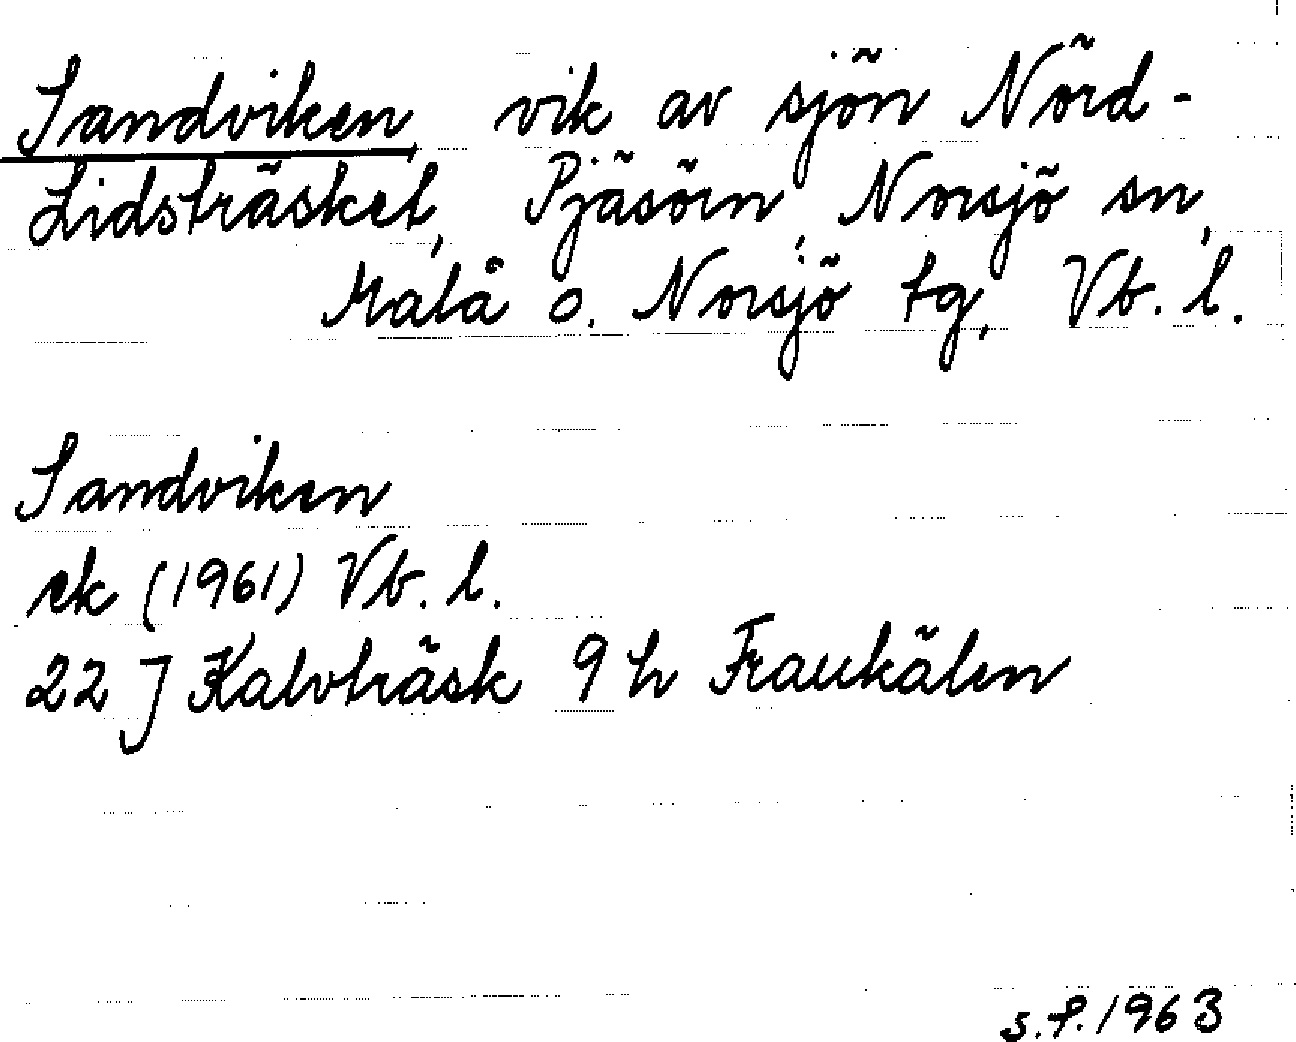 Sandviken, vik av sjön Nörd-
Lidsträsket, Pjäsörn, Norsjö sn,
Malå o. Norsjö tg, Vb. l.
Sandviken
ek (1961) Vb. l.
22 J Kalvträsk 9 h Fraukälen
s.f. 1963